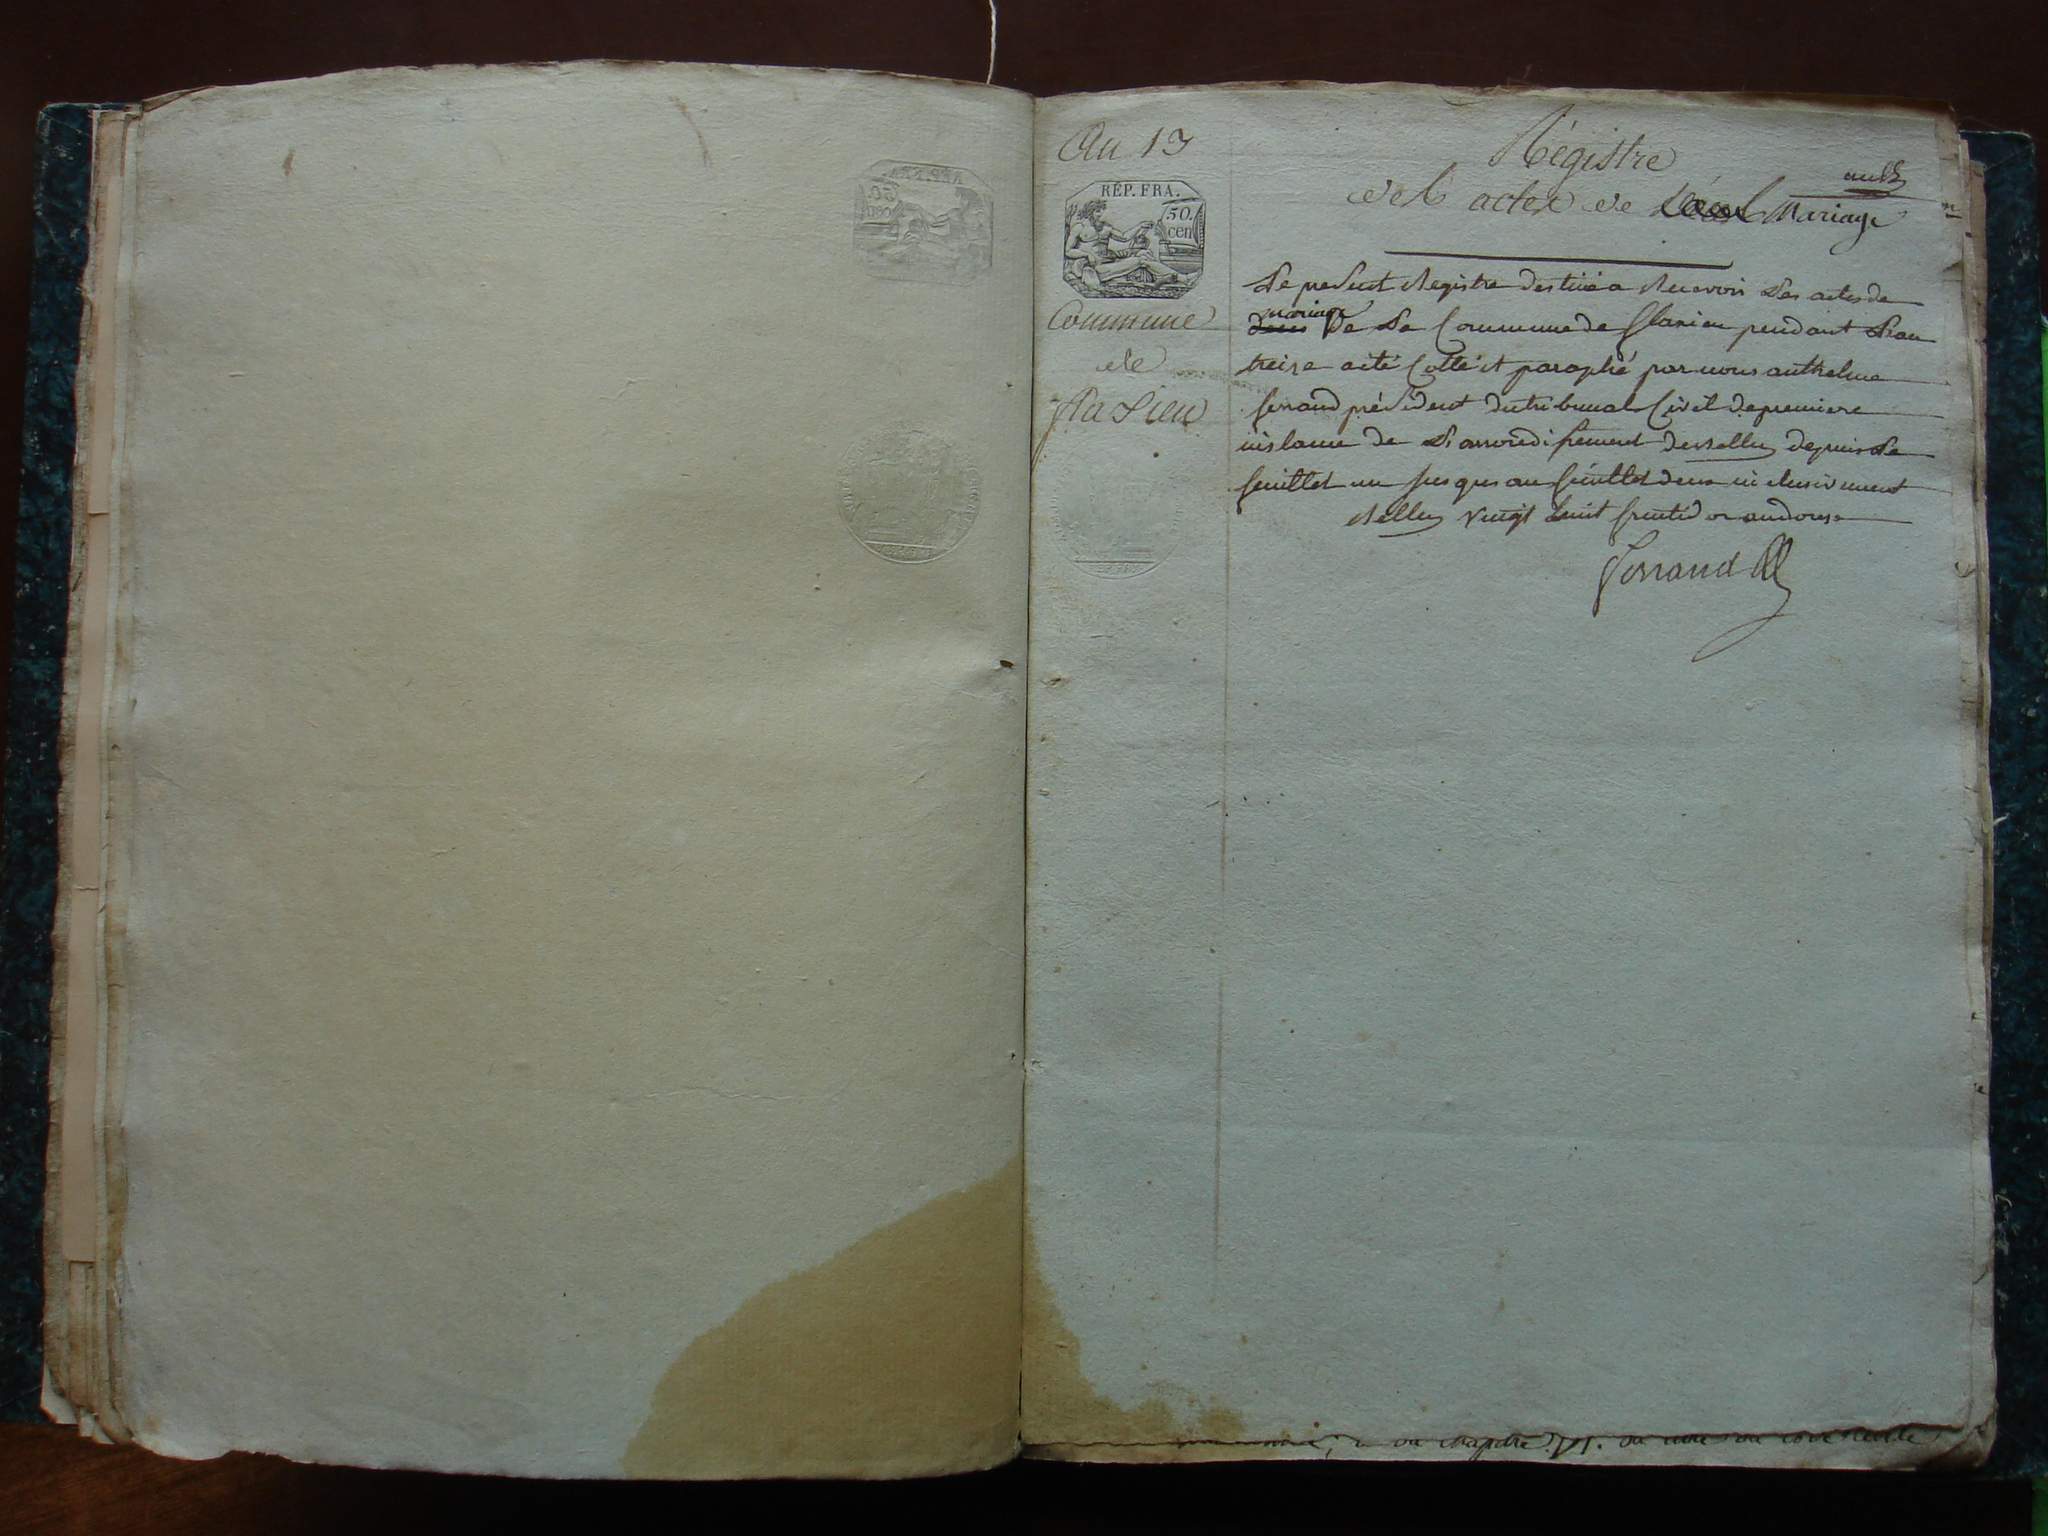 An 13
RÉP. FRA.
50.
cen
Commune
de
flaxieu
Régistre
des actes de Mariage
Le present Registre destiné a Recevoir Les actes de
mariage
de La Commune de flaxieu pendant L'an
treize a été Cotté et paraphé par nous anthelme
ferrand président du tribunal Civil de premiere
instance de L'arrondissement de Belley depuis Le
feuillet un jusques au feuillet deux inclusivement
Belley vingt huit fructidor an douze
Ferrand